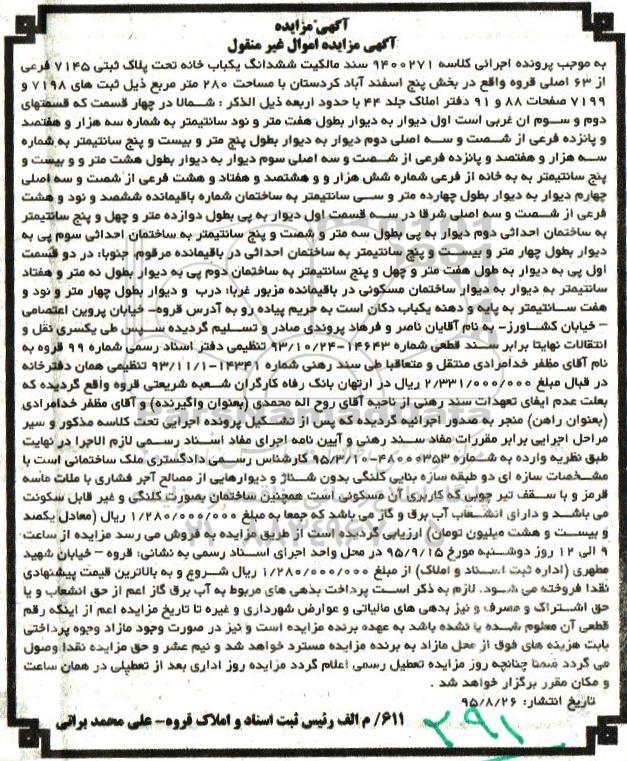 آگهی مزایده
آگهی مزایده اموال غیر منقول
به موجب پرونده اجرائی کلاسه ۹۴۰۰۲۷۱ سند مالکیت ششدانگ یکباب خانه تحت پلاک ثبتی ۷۱۴۵ فرعی
از ۶۳ اصلی قروه واقع در بخش پنج اسفند آباد کردستان با مساحت ۲۸۰ متر مربع ذیل ثبت های ۷۱۹۸ و
۷۱۹۹ صفحات ۸۸ و ۹۱ دفتر املاک جلد ۴۴ با حدود اربعه ذیل الذکر : شمالا در چهار قسمت که قسمتهای
دوم و سوم آن غربی است اول دیوار به دیوار بطول هفت متر و نود سانتیمتر به شماره سه هزار و هفتصد
و پانزده فرعی از شصت و سه اصلی دوم دیوار به دیوار بطول پنج متر و بیست و پنج سانتیمتر به شماره
سه هزار و هفتصد و پانزده فرعی از شصت و سه اصلی سوم دیوار به دیوار بطول هشت متر و و بیست و
پنج سانتیمتر به به خانه از فرعی شماره شش هزار و و هشتصد و هفتاد و هشت فرعی از شصت و سه اصلی
چهارم دیوار به دیوار بطول چهارده متر و سی سانتیمتر به ساختمان شماره باقیمانده ششصد و نود و هشت
فرعی از شصت و سه اصلی شرقا در سه قسمت اول دیوار به پی بطول دوازده متر و چهل و پنج سانتیمتر
به ساختمان احداثی دوم دیوار به پی بطول سه متر و شصت و پنج سانتیمتر به ساختمان احداثی سوم پی به
دیوار بطول چهار متر و بیست و پنج سانتیمتر به ساختمان احداثی در باقیمانده مرقوم، جنوبا: در دو قسمت
اول پی به دیوار به طول هفت متر و چهل و پنج سانتیمتر به ساختمان دوم پی به دیوار بطول نه متر و هفتاد
سانتیمتر به دیوار به دیوار ساختمان مسکونی در باقیمانده مزبور غربا: درب و دیوار بطول چهار متر و نود و
هفت سانتیمتر به پایه و دهنه یکباب دکان است به حریم پیاده رو به آدرس قروه- خیابان پروین اعتصامی
– خیابان کشاورز- به نام آقایان ناصر و فرهاد پروندی صادر و تسلیم گردیده سپس طی یکسری نقل و
انتقالات نهایتا برابر سند قطعی شماره ۱۴۶۴۳-۹۳/۱۰/۲۴ تنظیمی دفتر اسناد رسمی شماره ۹۹ قروه به
نام آقای مظفر خدامرادی منتقل و متعاقبا طی سند رهنی شماره ۱۴۳۴۱-۹۳/۱۱/۱ تنظیمی همان دفترخانه
در قبال مبلغ ۲/۳۳۱/۰۰۰/۰۰۰ ریال در ارتهان بانک رفاه کارگران شعبه شریعتی قروه واقع گردیده که
بعلت عدم ایفای تعهدات سند رهنی از ناحیه آقای روح اله محمدی (بعنوان واگیرنده) و آقای مظفر خدامرادی
(بعنوان راهن) منجر به صدور اجرائیه گردیده که پس از تشکیل پرونده اجرایی تحت کلاسه مذکور و سیر
مراحل اجرایی برابر مقررات مفاد سند رهنی و آیین نامه اجرای مفاد اسناد رسمی لازم الاجرا در نهایت
طبق نظریه وارده به شماره ۴۸۰۰۰۳۵۳-۹۵/۳/۱۰ کارشناس رسمی دادگستری ملک ساختمانی است با
مشخصات سازه ای دو طبقه سازه بنایی کلنگی بدون شناژ و دیوارهایی از مصالح آجر فشاری با ملات ماسه
قرمز و با سقف تیر چوبی که کاربری آن مسکونی است همچنین ساختمان بصورت کلنگی و غیر قابل سکونت
می باشد و دارای انشعاب آب برق و گاز می باشد که جمعا به مبلغ ۱/۲۸۰/۰۰۰/۰۰۰ ریال (معادل یکصد
و بیست و هشت میلیون تومان) ارزیابی گردیده است از طریق مزایده به فروش می رسد مزایده از ساعت
۹ الی ۱۲ روز دوشنبه مورخ ۹۵/۹/۱۵ در محل واحد اجرای اسناد رسمی به نشانی: قروه – خیابان شهید
مطهری (اداره ثبت اسناد و املاک) از مبلغ ۱/۲۸۰/۰۰۰/۰۰۰ ریال شروع و به بالاترین قیمت پیشنهادی
نقدا فروخته می شود. لازم به ذکر است پرداخت بدهی های مربوط به آب برق گاز اعم از حق انشعاب و یا
حق اشتراک و مصرف و نیز بدهی های مالیاتی و عوارض شهرداری و غیره تا تاریخ مزایده اعم از اینکه رقم
قطعی آن معلوم شده یا نشده باشد به عهده برنده مزایده است و نیز در صورت وجود مازاد وجوه پرداختی
بابت هزینه های فوق از محل مازاد به برنده مزایده مسترد خواهد شد و نیم عشر و حق مزایده نقدا وصول
می گردد ضمنا چنانچه روز مزایده تعطیل رسمی اعلام گردد مزایده روز اداری بعد از تعطیلی در همان ساعت
و مکان مقرر برگزار خواهد شد .
تاریخ انتشار: ۹۵/۸/۲۶
۶۱۱/ م الف رئیس ثبت اسناد و املاک قروه- علی محمد براتی
۲۹۱